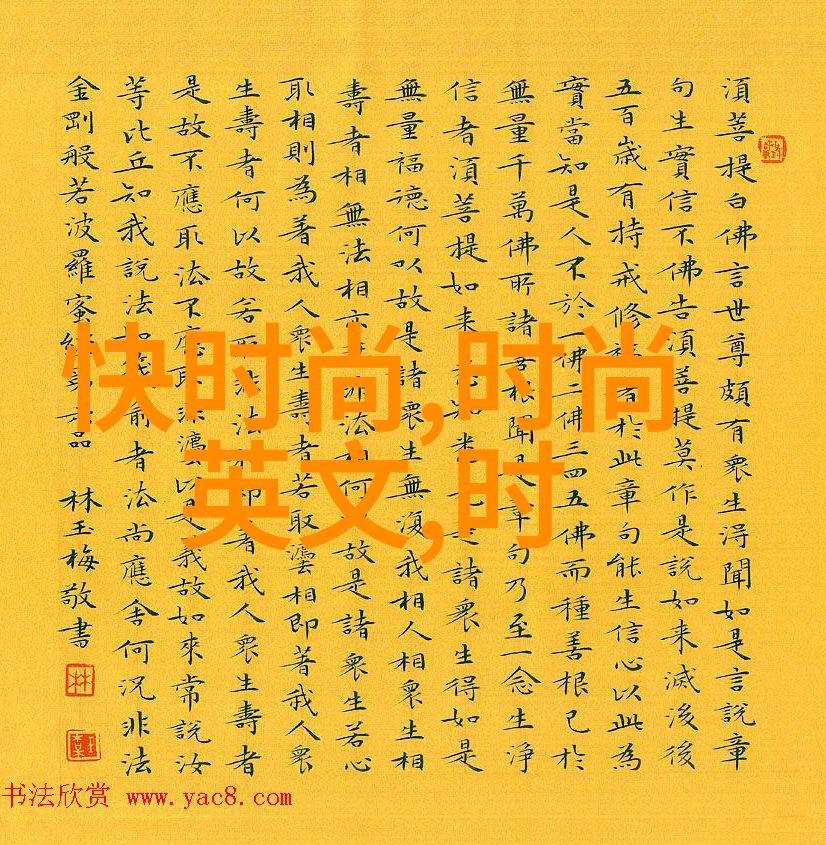 須菩提白佛言世尊頗有眾生得聞如是言說章
句生實信不佛告須菩提莫作是說如来滅後後
五百歲有持戒修者於此章句能生信心以此為
實當知是人不於一佛二佛三四五佛而種善根已於
無量千萬佛所諸善根聞是章句乃至一念生淨
信者須菩提如来悉知是諸眾生得如是
無量福德何以故是諸眾生無復我相人相眾生相
壽者相無法相亦非法相何以故是諸眾生若心
取相則為著我人眾生壽者若取法相即著我人眾
生壽者何以故若非法相即著我人眾生壽者
是故不應取法不應取非法以是義故如來常說汝
等比丘知我說法喻者法尚應舍何況非法
金剛般若波羅蜜經品 林玉梅敬書
林
快时尚,时尚
英文,时
书法欣赏 www.yac8.com